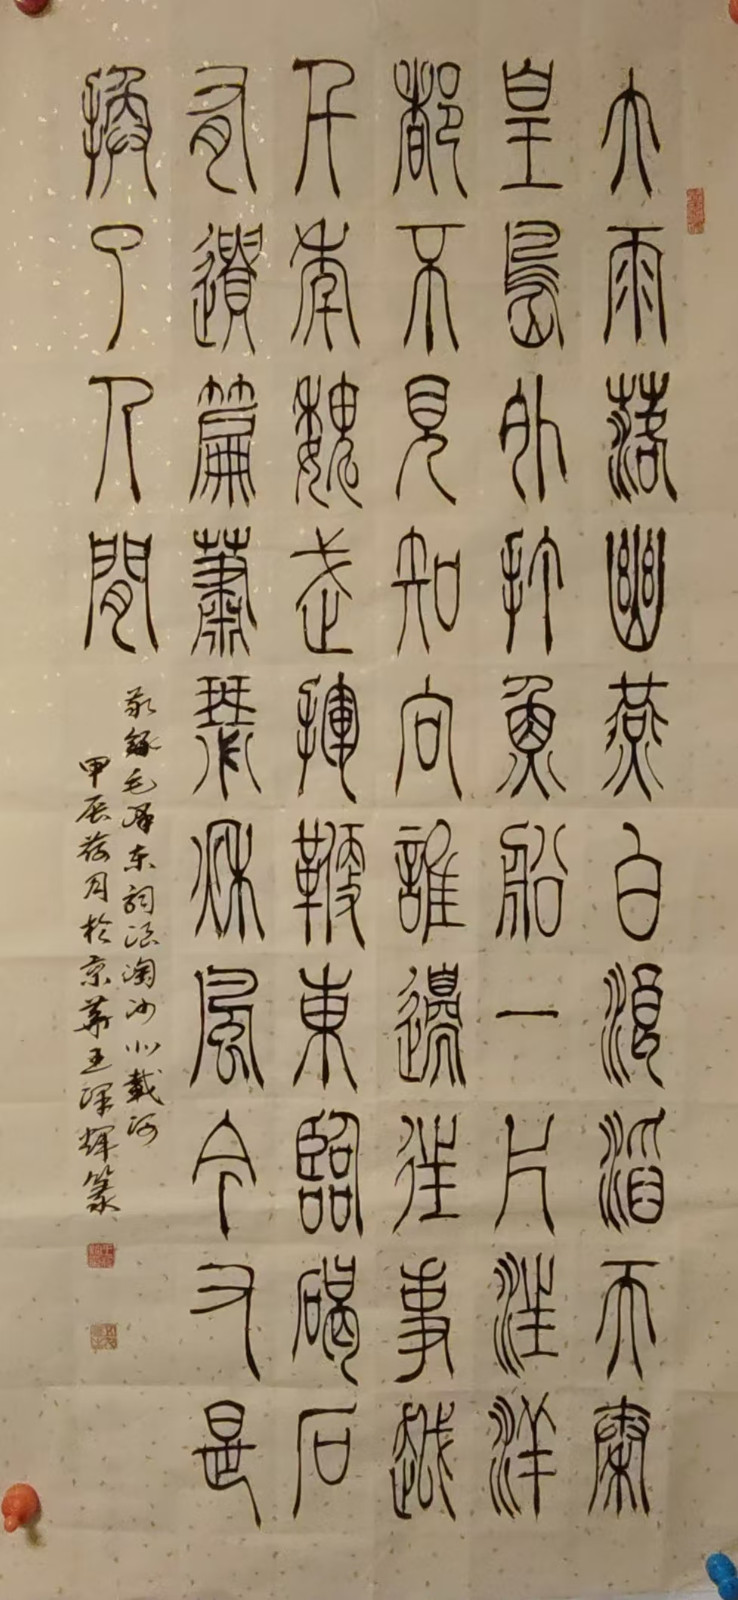 大雨落幽燕白浪滔天秦
皇島外打魚船一片汪洋
都不見知向誰邊往事越
千年魏武揮鞭東臨碣石
有遺篇蕭瑟秋風今又是
換了人間
敬録毛澤东詞浪淘沙北戴河
甲辰荷月於京華王深輝篆